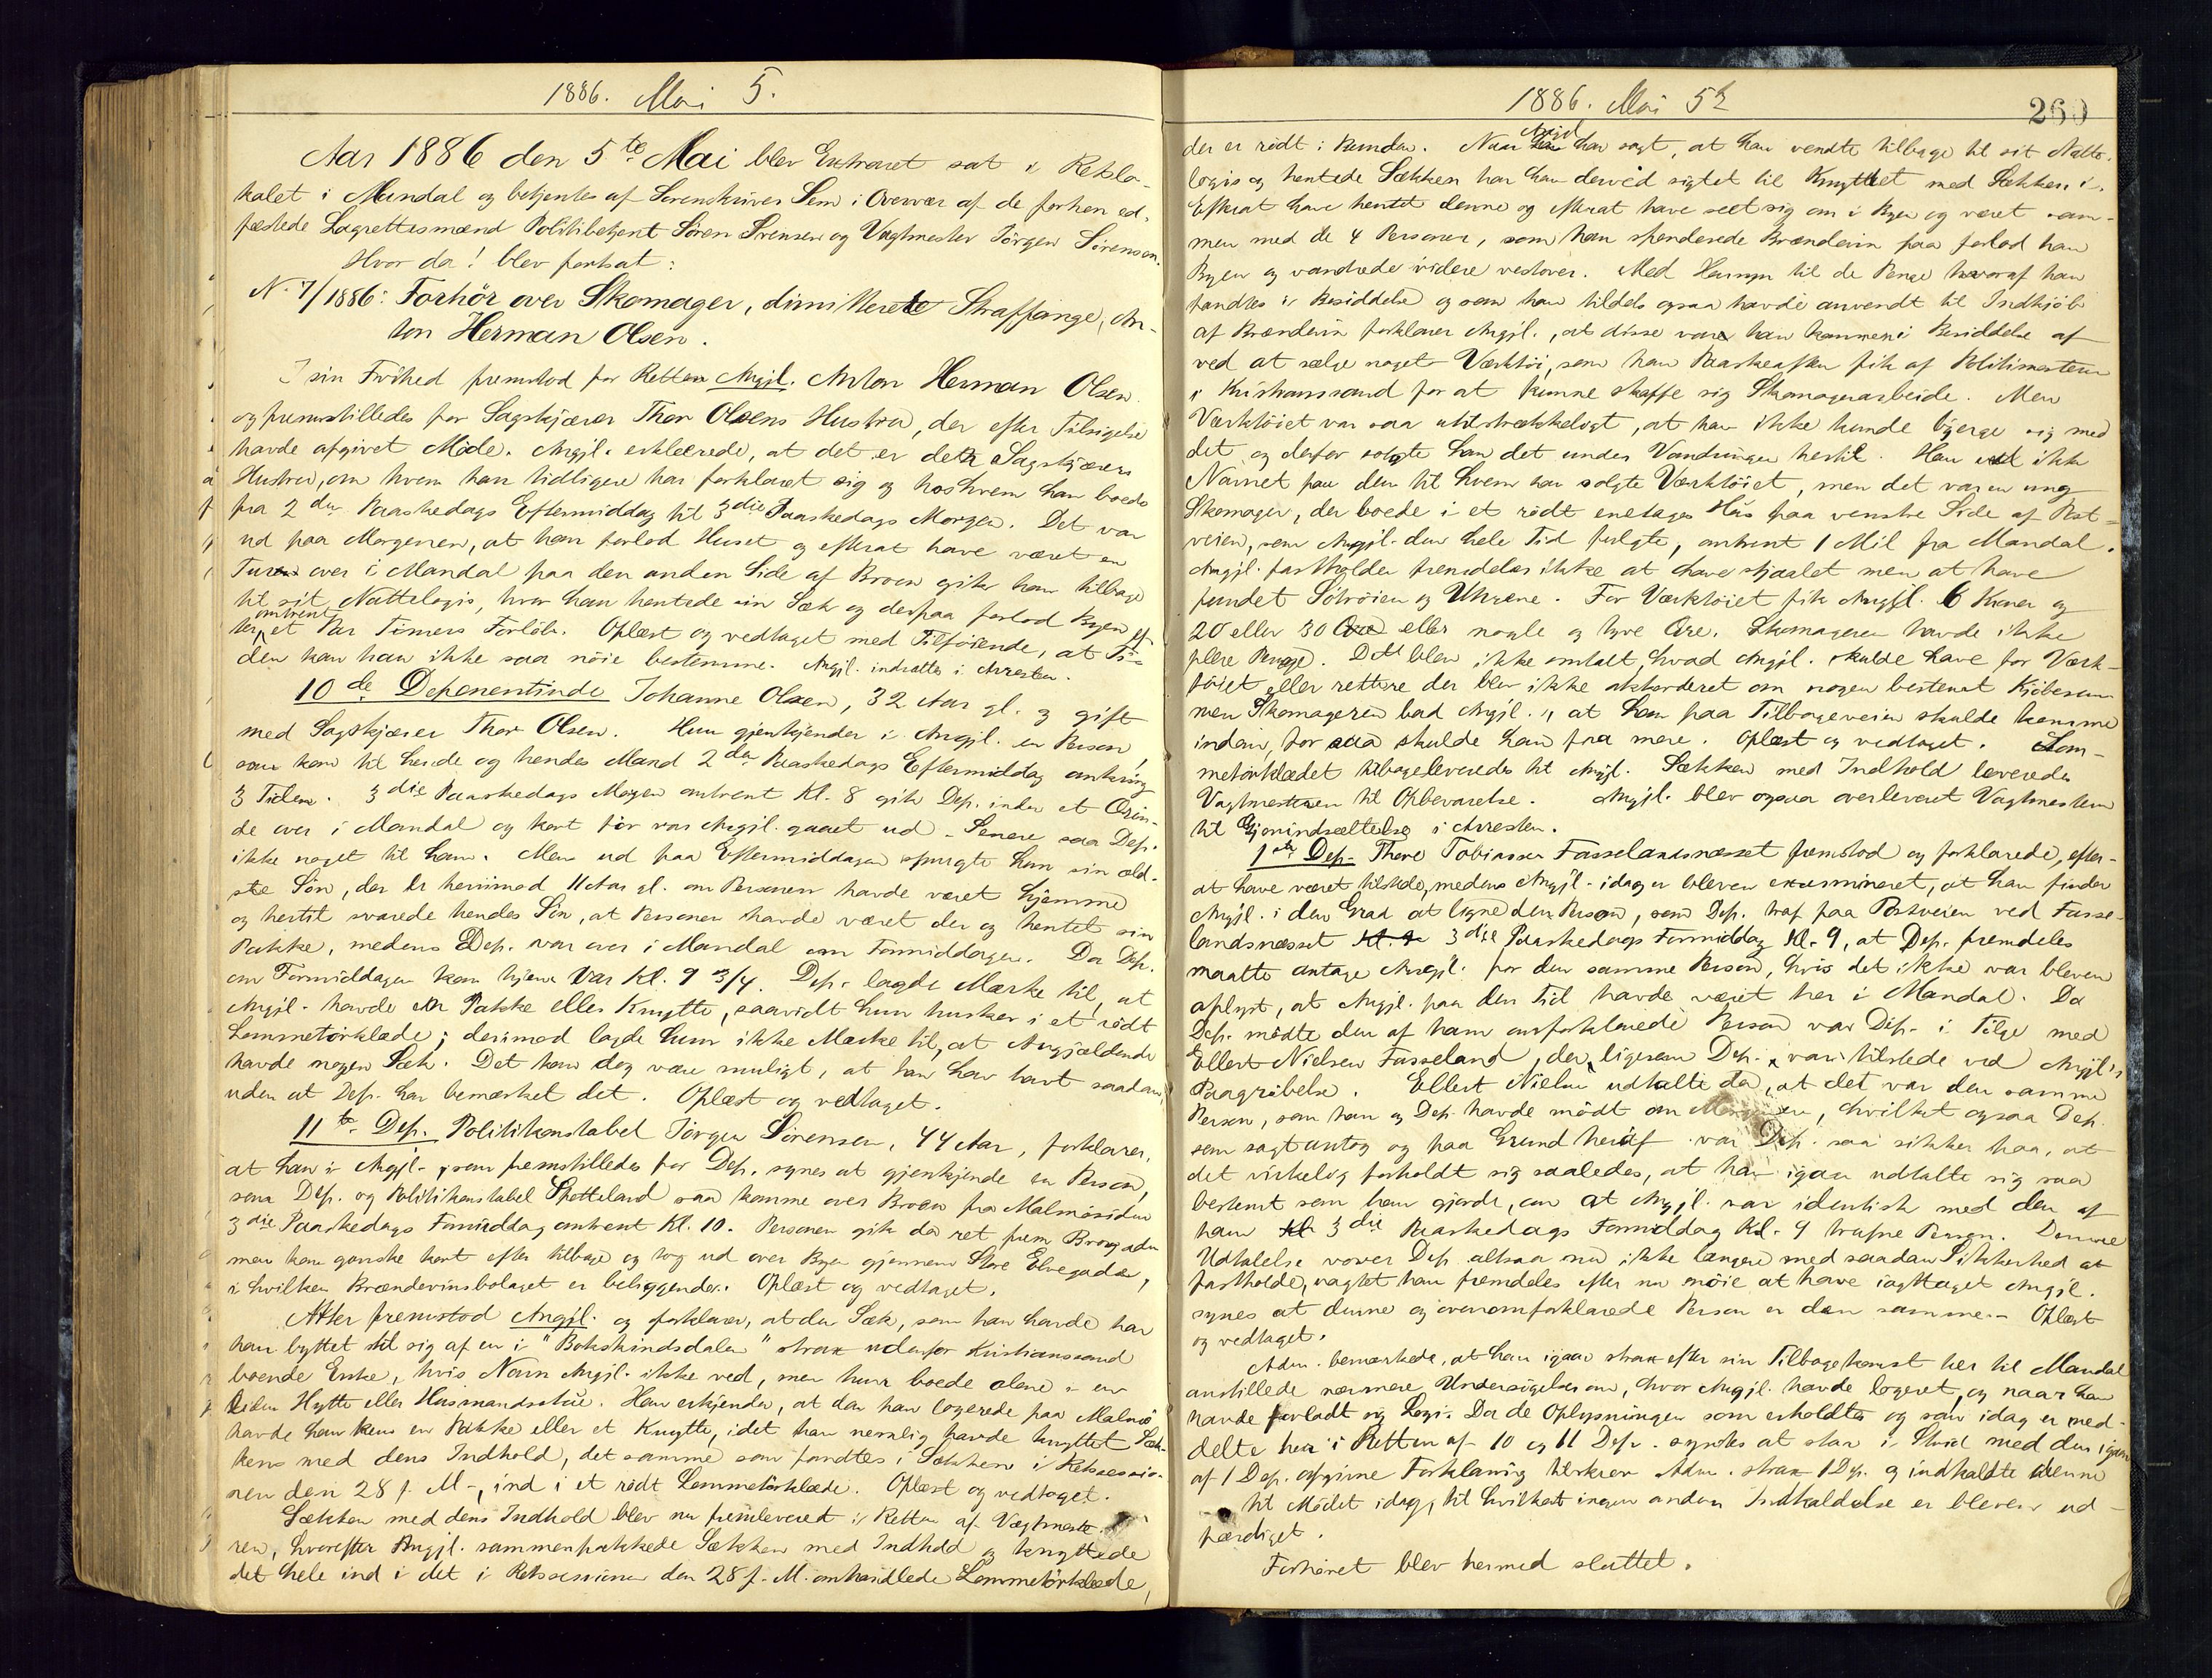 1886. Mai 5.
Aar 1886 den 5te Mai blev Extraret sat i Retslo-
kalet i Mandal og betjentes af Sorenskriver Sem i Overvær af de forhen ed-
fæstede Lagrettesmænd Politibetjent Sören Sörensen og Vagtmester Jörgen Sörensen.
Hvor da! blev fortsat:
N. 7/1886: Forhör over Skomager, dimitterete Straffange, An-
ton Herman Olsen.
I sin Frihed fremstod for Retten Angjl. Anton Herman Olsen
og fremstilledes for Sagskjærer Thor Olsens Hustru, der efter Tilsigelse
havde afgivet Möde. Angjl. erklærede, at det er den Sagskjærers
Hustru, om hvem han tidligere har forklaret sig og hos hvem han boede
fra 2den Paaskedags Eftermiddag til 3die Paaskedags Morgen. Det var
ud paa Morgenen, at han forlod Huset og efterat have været en
Tur over i Mandal paa den anden Side af Broen gik han tilbage
til sit Nattelogis, hvor han hentede sin Sæk og derpaa forlod Byen ef-
ter omtrent et Par Timers Forlöb. Oplæst og vedtaget med Tilföiende, at Ti-
den kan han ikke saa nöie bestemme. Angjl. indsattes i Arresten.
10de Deponentinde Johanne Olsen, 32 Aar gl. og gift
med Sagskjærer Thor Olsen. Hun gjenkjender i Angjl. en Person
som kom til hende og hendes Mand 2den Paaskedags Eftermiddag omkring
3 Tiden. 3die Paaskedags Morgen omtrent Kl. 8 gik Dep. inden et Ærin-
de over i Mandal og kort för var Angjl. gaaet ud. Senere saa Dep.
ikke noget til ham. Men ud paa Eftermiddagen spurgte hun sin æld-
ste Sön, der er henimod 11 Aar gl. om Personen havde været hjemme
og hertil svarede hendes Sön, at Personen havde været der og hentet sin
Pakke, medens Dep. var over i Mandal om Formiddagen. Da Dep.
om Formiddagen kom hjem var Kl. 9 3/4. Dep. lagde Mærke til, at
Angjl. havde en Pakke eller Knytte, saavidt hun husker i et rödt
Lommetörklæde; derimod lagde hun ikke Mærke til, at Angjældende
havde nogen Sæk. Det kan dog være muligt, at han har havt saadan,
uden at Dep. har bemærket det. Oplæst og vedtaget.
11te Dep. Politikonstabel Jörgen Sörensen, 44 Aar, forklarer,
at han i Angjl., som fremstilledes for Dep. synes at gjenkjende en Person,
som Dep. og Politikonstabel Spetteland saa komme over Broen fra Malmösiden
3die Paaskedags Formiddag omtrent Kl. 10. Personen gik da ret frem Brogaden
men kom ganske kort efter tilbage og tog ud over Byen gjennem Store Elvegade,
i hvilken Brændevinsbolaget er beliggende. Oplæst og vedtaget.
Atter fremstod Angjl. og forklarer, at den Sæk, som han havde har
han byttet til sig af en i "Bokskindsdalen" strax udenfor Kristianssand
boende Enke, hvis Navn Angjl. ikke ved, men hun boede alene i en
liden Hytte eller Husmandsstue. Han erkjender, at da han logerede paa Malmö
havde han kun en Pakke eller et Knytte, idet han nemlig havde knyttet Sæk-
kens med dens Indhold, det samme som fandtes i Sækken i Retssessio-
nen den 28 f. M., ind i et rödt Lommetörklæde. Oplæst og vedtaget.
Sækken med dens Indhold blev nu fremleveret i Retten af Vagtmeste-
ren, hvorefter Angjl. sammenpakkede Sækken med Indhold og knyttede
det hele ind i det i Retssessionen den 28 f. M. omhandlede Lommetörklæde,
1886. Mai 5te
260
der er rödt i Bunden. Naar Angjl. har sagt, at han vendte tilbage til sit Natte-
logis og hentede Sækken har han derved sigtet til Knyttet med Sækken i.
Efterat have hentet denne og efterat have seet sig om i Byen og været sam-
men med de 4 Personer, som han spenderede Brændevin paa forlod han
Byen og vandrede videre vestover. Med Hensyn til de Penge hvoraf han
fandtes i Besiddelse og som han tildels ogsaa havde anvendt til Indkjöb
af Brændevin forklarer Angjl., at disse var han kommen i Besiddelse af
ved at sælge noget Værktöi, som han Paaskeaften fik af Politimesteren
i Kristianssand for at kunne skaffe sig Skomagerarbeide. Men
Værktöiet var saa utilstrækkeligt, at han ikke kunde bjerge sig med
det og derfor solgte han det under Vandringen hertil. Han ved ikke
Navnet paa den til hvem han solgte Værktöiet, men det var en ung
Skomager, der boede i et rödt enetages Hus paa venstre Side af Post-
veien, som Angjl. den hele Tid fulgte, omtrent 1 Mil fra Mandal.
Angjl. fastholder fremdeles ikke at have stjaalet men at have
fundet Sölvöien og Uhrene. For Værktöiet fik Angjl. 6 Kroner og
20 eller 30 Öre eller nogle og tyve Öre. Skomageren havde ikke
flere Penge. Det blev ikke omtalt, hvad Angjl. skulde have for Værk-
töiet eller rettere der blev ikke akkorderet om nogen bestemt Kjöbesum
men Skomageren bad Angjl., at han paa Tilbageveien skulde komme
indom, for saa skulde han faa mere. Oplæst og vedtaget. Lom-
metörklædet tilbageleveredes til Angjl. Sækken med Indhold leveredes
Vagtmesteren til Opbevarelse. Angjl. blev ogsaa overleveret Vagtmesteren
til Gjenindsættelse i Arresten.
1ste Dep. Thore Tobiassen Fasselandsnæsset fremstod og forklarede, efter
at have været tilstede, medens Angjl. idag er bleven examineret, at han finder
Angjl. i den Grad at ligne den Person, som Dep. traf paa Postveien ved Fasse-
landsnæsset 3die Paaskedags Formiddag Kl. 9, at Dep. fremdeles
maatte antage Angjl. for den samme Person, hvis det ikke var bleven
oplyst, at Angjl. paa den Tid havde været her i Mandal. Da
Dep. mödte den af ham omforklarede Person var Dep. i Fölge med
Ellert Nielsen Fasseland, der, ligesom Dep., var tilstede ved Angjl's
Paagribelse. Ellert Nielsen udtalte da, at det var den samme
Person, som han og Dep. havde mödt om Morgenen, hvilket ogsaa Dep.
som sagt antog og paa Grund heraf var Dep. saa sikker paa, at
det virkelig forholdt sig saaledes, at han igaar udtalte sig saa
bestemt som han gjorde, om at Angjl. var identisk med den af
ham 3die Paaskedags Formiddag Kl. 9 trufne Person. Denne
Udtalelse vover Dep. altsaa nu ikke længere med saadan Sikkerhed at
fastholde, uagtet han fremdeles efter nu nöie at have iagttaget Angjl.
synes at denne og ovenomforklarede Person er den samme. Oplæst
og vedtaget.
Adm. bemærkede, at han igaar strax efter sin Tilbagekomst her til Mandal
anstillede nærmere Undersögelser om, hvor Angjl. havde logeret, og naar han
havde forladt sig Logi. Da de Oplysninger som erholdtes og som idag er med-
delte her i Retten af 10 og 11 Dep. syntes at staa i Strid med den igaar
af 1 Dep. afgivne Forklaring tilskrev Adm. strax 1 Dep. og indkaldte denne
til Mödet idag, til hvilket ingen anden Indkaldelse er bleven ud-
færdiget.
Forhöret blev hermed sluttet.